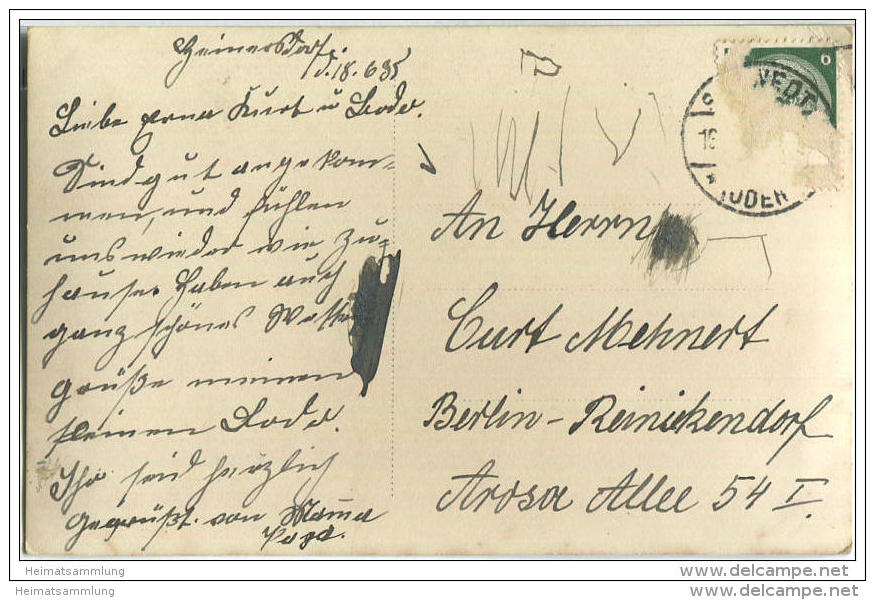 Heinersdorf
d. 18. 6. 35
Liebe Erna Kurt u Bodo.
Sind gut angekom-
men, und fühlen
uns wieder wie zu-
hause. Haben auch
ganz schönes Wetter
grüße meinen
kleinen Bodo.
Ihr seid herzlich
gegrüßt. von Mama
Papa.
An Herrn
Curt Mehnert
Berlin-Reinickendorf
Arosa Allee 54 I.
WEDT
ODER
Heimatsammlung
Heimatsammlung
delcampe.net
delcampe.net